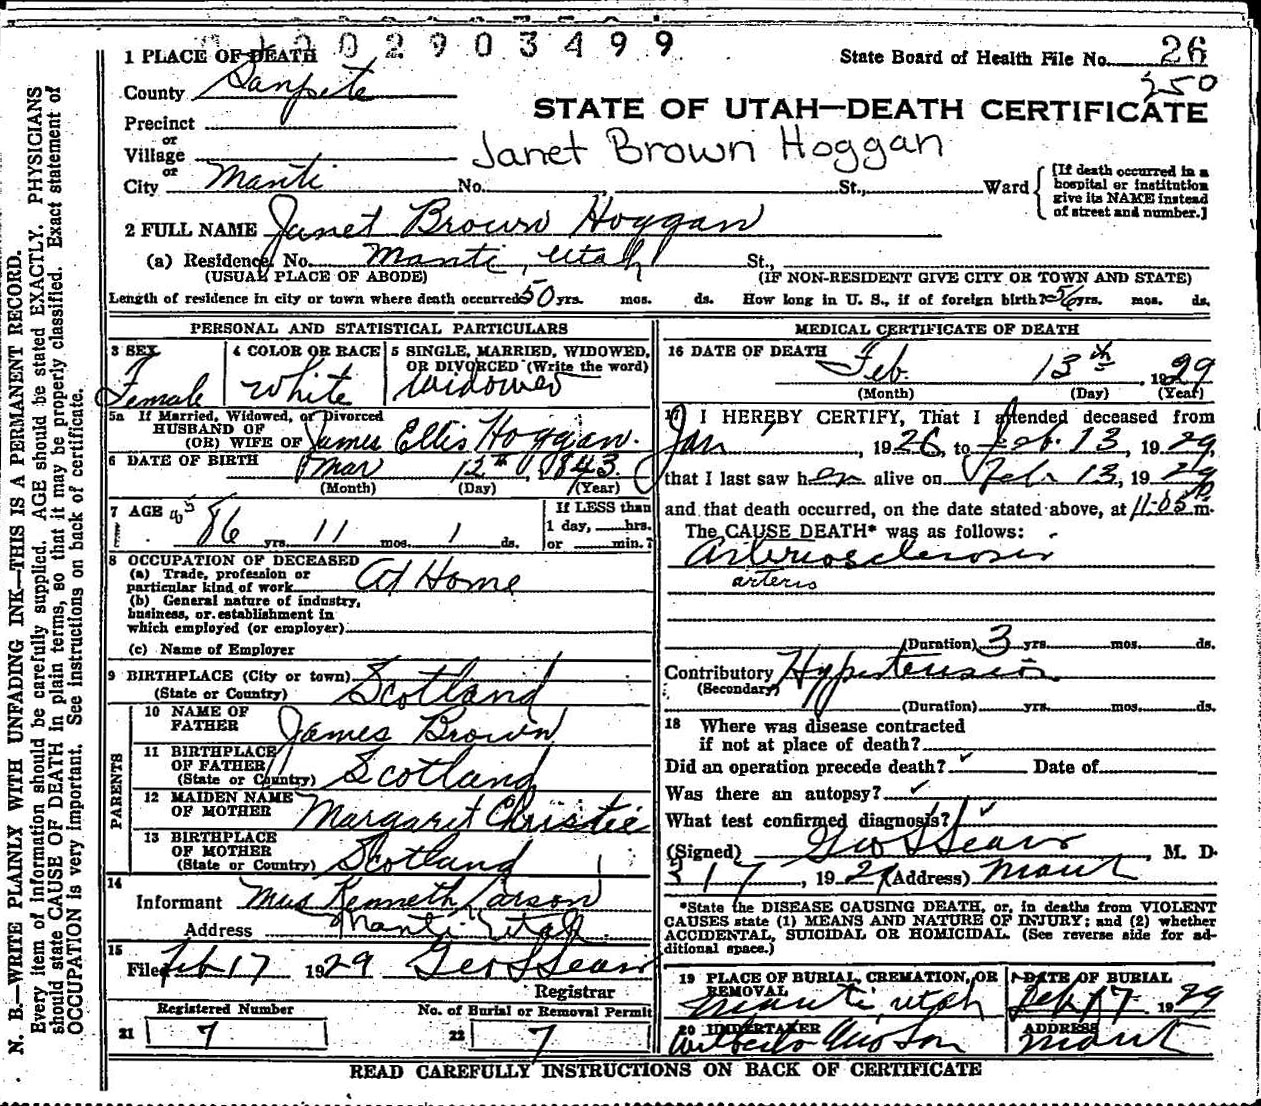 002903499
1 PLACE OF DEATH
State Board of Health File No. 26
250
County Sanpete
STATE OF UTAH—DEATH CERTIFICATE
Precinct
or
Village
Janet Brown Hoggan
or
City Manti No. St., Ward
[If death occurred in a
hospital or institution
give its NAME instead
of street and number.]
2 FULL NAME Janet Brown Hoggan
(a) Residence, No. Manti, Utah St.,
(USUAL PLACE OF ABODE) (IF NON-RESIDENT GIVE CITY OR TOWN AND STATE)
Length of residence in city or town where death occurred 50 yrs. mos. ds. How long in U. S., if of foreign birth? 56 yrs. mos. ds.
PERSONAL AND STATISTICAL PARTICULARS
3 SEX
Female
4 COLOR OR RACE
White
5 SINGLE, MARRIED, WIDOWED,
OR DIVORCED (Write the word)
Widowed
5a If Married, Widowed, or Divorced
HUSBAND OF
(OR) WIFE OF James Ellis Hoggan.
6 DATE OF BIRTH Mar 12th, 1843.
(Month) (Day) (Year)
7 AGE 86 yrs. 11 mos. 1 ds.
If LESS than
1 day, hrs.
or min.?
8 OCCUPATION OF DECEASED
(a) Trade, profession or
particular kind of work At Home
(b) General nature of industry,
business, or establishment in
which employed (or employer)
(c) Name of Employer
9 BIRTHPLACE (City or town)
(State or Country) Scotland
PARENTS
10 NAME OF
FATHER James Brown
11 BIRTHPLACE
OF FATHER
(State or Country) Scotland
12 MAIDEN NAME
OF MOTHER Margaret Christie
13 BIRTHPLACE
OF MOTHER
(State or Country) Scotland
14
Informant Mrs Kenneth Larson
Address Manti Utah
15
Filed Feb 17 1929 Geo S Sears
Registrar
Registered Number
21 7
No. of Burial or Removal Permit
22 7
MEDICAL CERTIFICATE OF DEATH
16 DATE OF DEATH
Feb. 13th, 1929
(Month) (Day) (Year)
17 I HEREBY CERTIFY, That I attended deceased from
Jan, 1926, to Feb. 13, 1929,
that I last saw her alive on Feb 13, 1929
and that death occurred, on the date stated above, at 11-05 m.
The CAUSE DEATH* was as follows:
Arteriosclerosis
arterio
(Duration) 3 yrs. mos. ds.
Contributory Hypertension
(Secondary)
(Duration) yrs. mos. ds.
18 Where was disease contracted
if not at place of death?
Did an operation precede death? Date of
Was there an autopsy?
What test confirmed diagnosis?
(Signed) Geo S Sears, M. D.
3 17, 1929 (Address) Manti
*State the DISEASE CAUSING DEATH, or, in deaths from VIOLENT
CAUSES state (1) MEANS AND NATURE OF INJURY; and (2) whether
ACCIDENTAL, SUICIDAL OR HOMICIDAL. (See reverse side for ad-
ditional space.)
19 PLACE OF BURIAL, CREMATION, OR
REMOVAL
Manti, Utah
DATE OF BURIAL
Feb 17 1929
20 UNDERTAKER
ADDRESS
Manti
READ CAREFULLY INSTRUCTIONS ON BACK OF CERTIFICATE
N. B.—WRITE PLAINLY WITH UNFADING INK—THIS IS A PERMANENT RECORD.
Every item of information should be carefully supplied. AGE should be stated EXACTLY. PHYSICIANS
should state CAUSE OF DEATH in plain terms, so that it may be properly classified. Exact statement of
OCCUPATION is very important. See instructions on back of certificate.